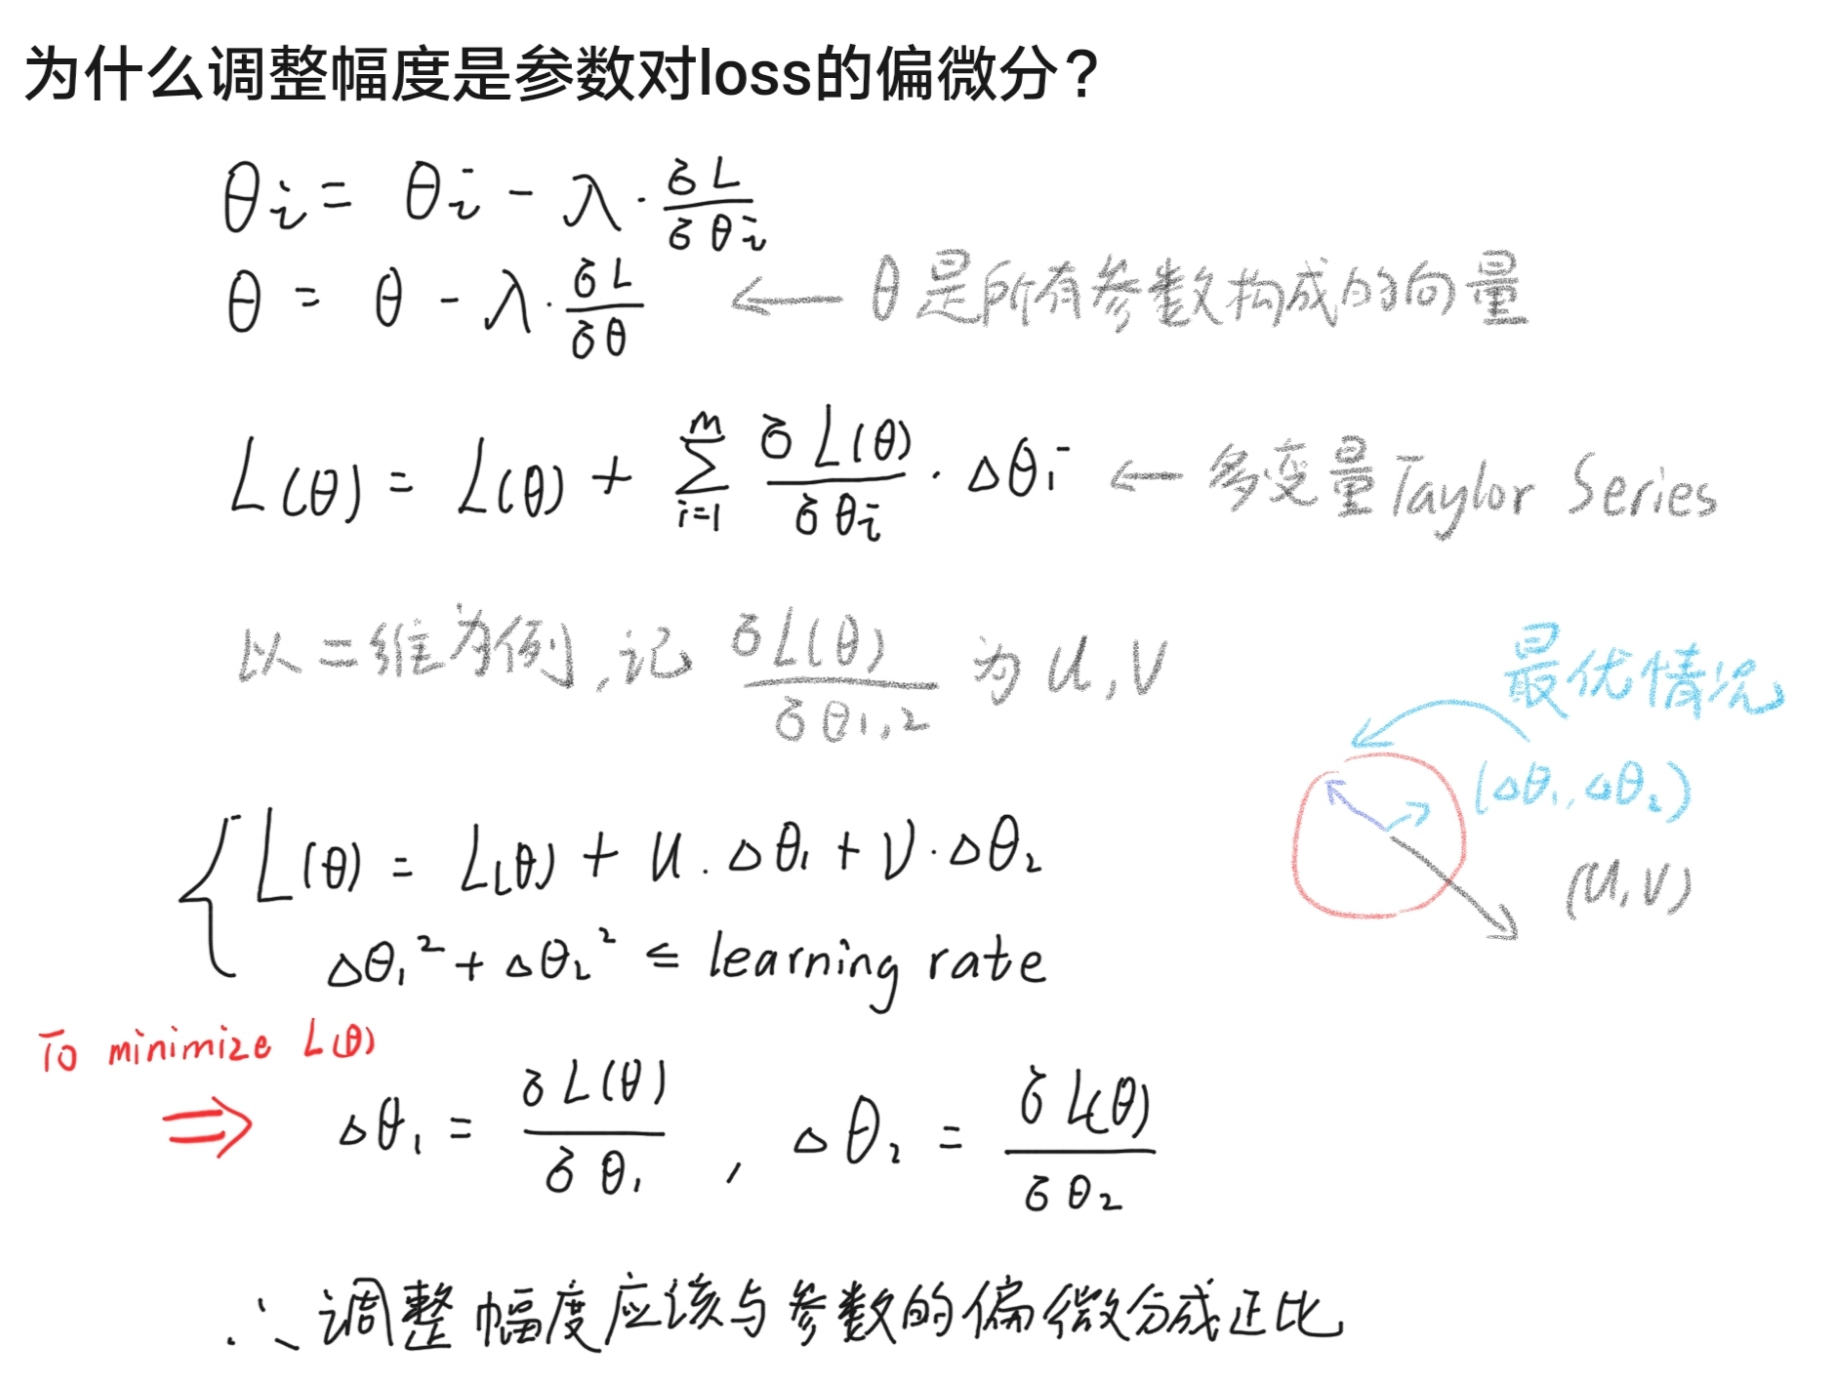 为什么调整幅度是参数对loss的偏微分?
θi = θi - λ · δL/δθi
θ = θ - λ · δL/δθ ← θ是所有参数构成的向量
L(θ) = L(θ) + Σ_{i=1}^{m} δL(θ)/δθi · Δθi ← 多变量Taylor Series
以二维为例,记 δL(θ)/δθ1,2 为 u,v
最优情况
(Δθ1, Δθ2)
(u,v)
{ L(θ) = L(θ) + u · Δθ1 + v · Δθ2
Δθ1² + Δθ2² ≤ learning rate
To minimize L(θ)
⇒ Δθ1 = δL(θ)/δθ1 , Δθ2 = δL(θ)/δθ2
∴ 调整幅度应该与参数的偏微分成正比